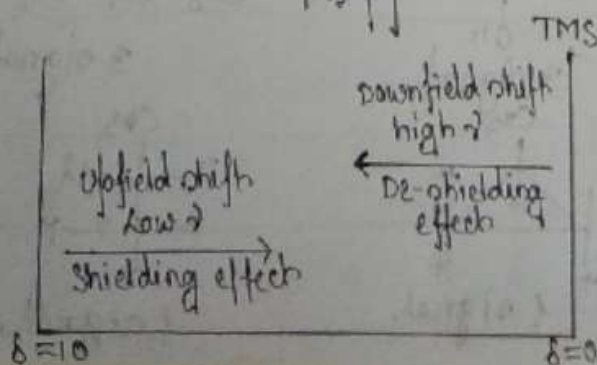 TMS
Downfield shift
high ν
De-shielding
effect
Upfield shift
Low ν
Shielding effect
δ=10
δ=0